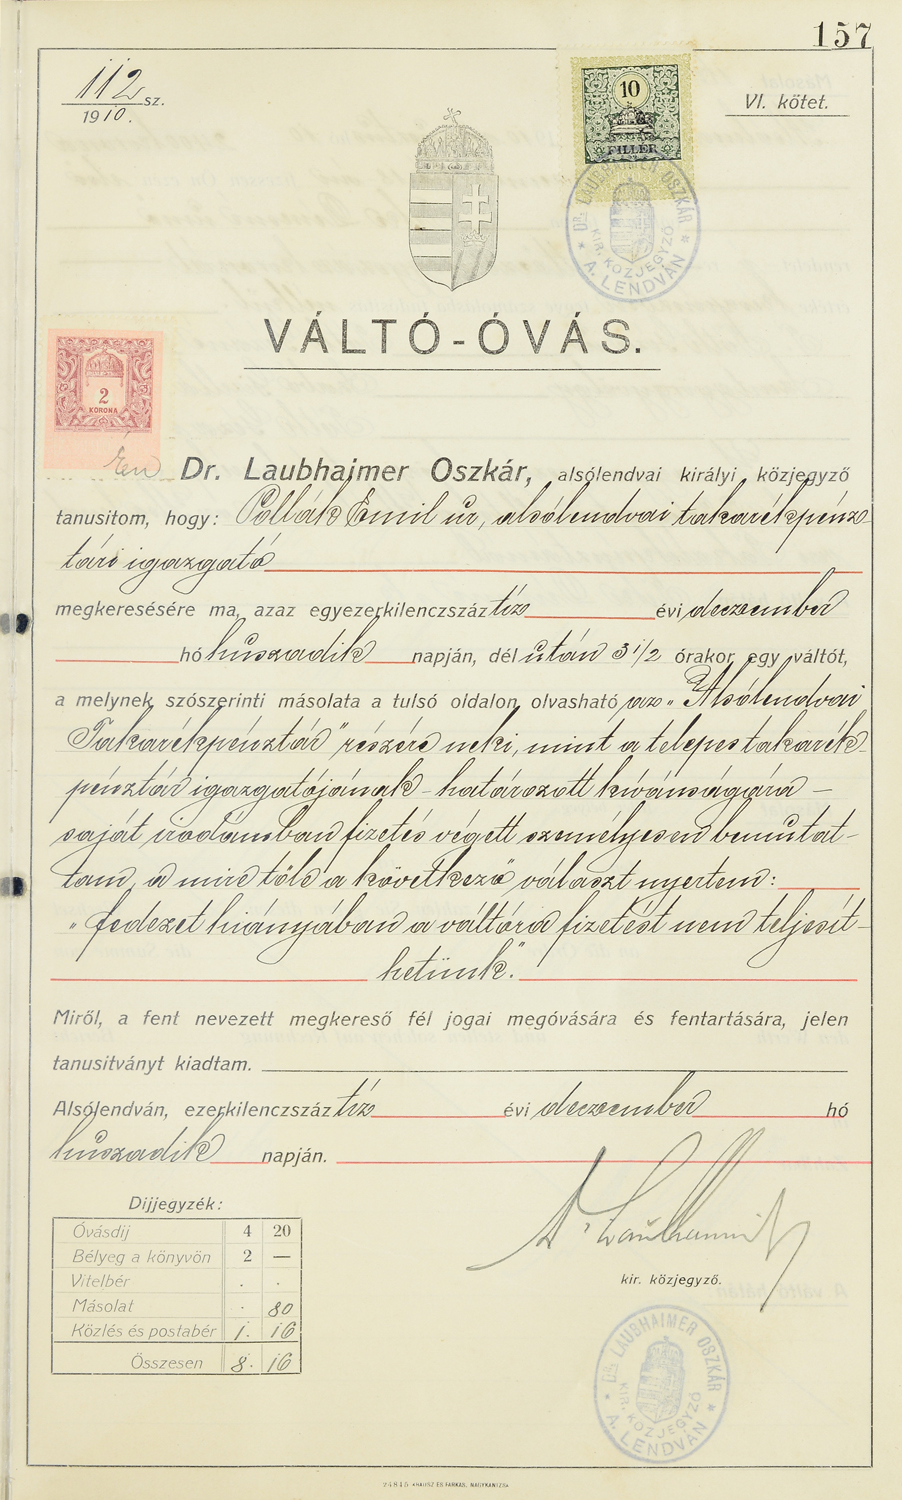 157
112 sz.
1910.
VI. kötet.
10
FILLÉR
Dr. LAUBHAIMER OSZKÁR
KIR. KÖZJEGYZŐ
* A. LENDVÁN *
VÁLTÓ-ÓVÁS.
2
KORONA
Én Dr. Laubhaimer Oszkár, alsólendvai királyi közjegyző
tanusitom, hogy: Pollák Emil ur, alsólendvai takarékpénz-
tári igazgató
megkeresésére ma, azaz egyezerkilenczszáz tiz évi deczember
hó huszadik napján, dél után 3 1/2 órakor egy váltót,
a melynek szószerinti másolata a tulsó oldalon olvasható az „Alsólendvai
Takarékpénztár" részére neki, mint a telepes takarék-
pénztár igazgatójának – határozott kivánságára –
saját irodámban fizetés végett személyesen bemutat-
tam, a mire tőle a következő választ nyertem:
„fedezet hiányában a váltóra fizetést nem teljesít-
hetünk."
Miről, a fent nevezett megkereső fél jogai megóvására és fentartására, jelen
tanusitványt kiadtam.
Alsólendván, ezerkilenczszáz tiz évi deczember hó
huszadik napján.
Dijjegyzék:
Óvásdij 4 20
Bélyeg a könyvön 2 —
Vitelbér . .
Másolat . 80
Közlés és postabér 1. 16
Összesen 8. 16
kir. közjegyző.
Dr. LAUBHAIMER OSZKÁR
KIR. KÖZJEGYZŐ
* A. LENDVÁN *